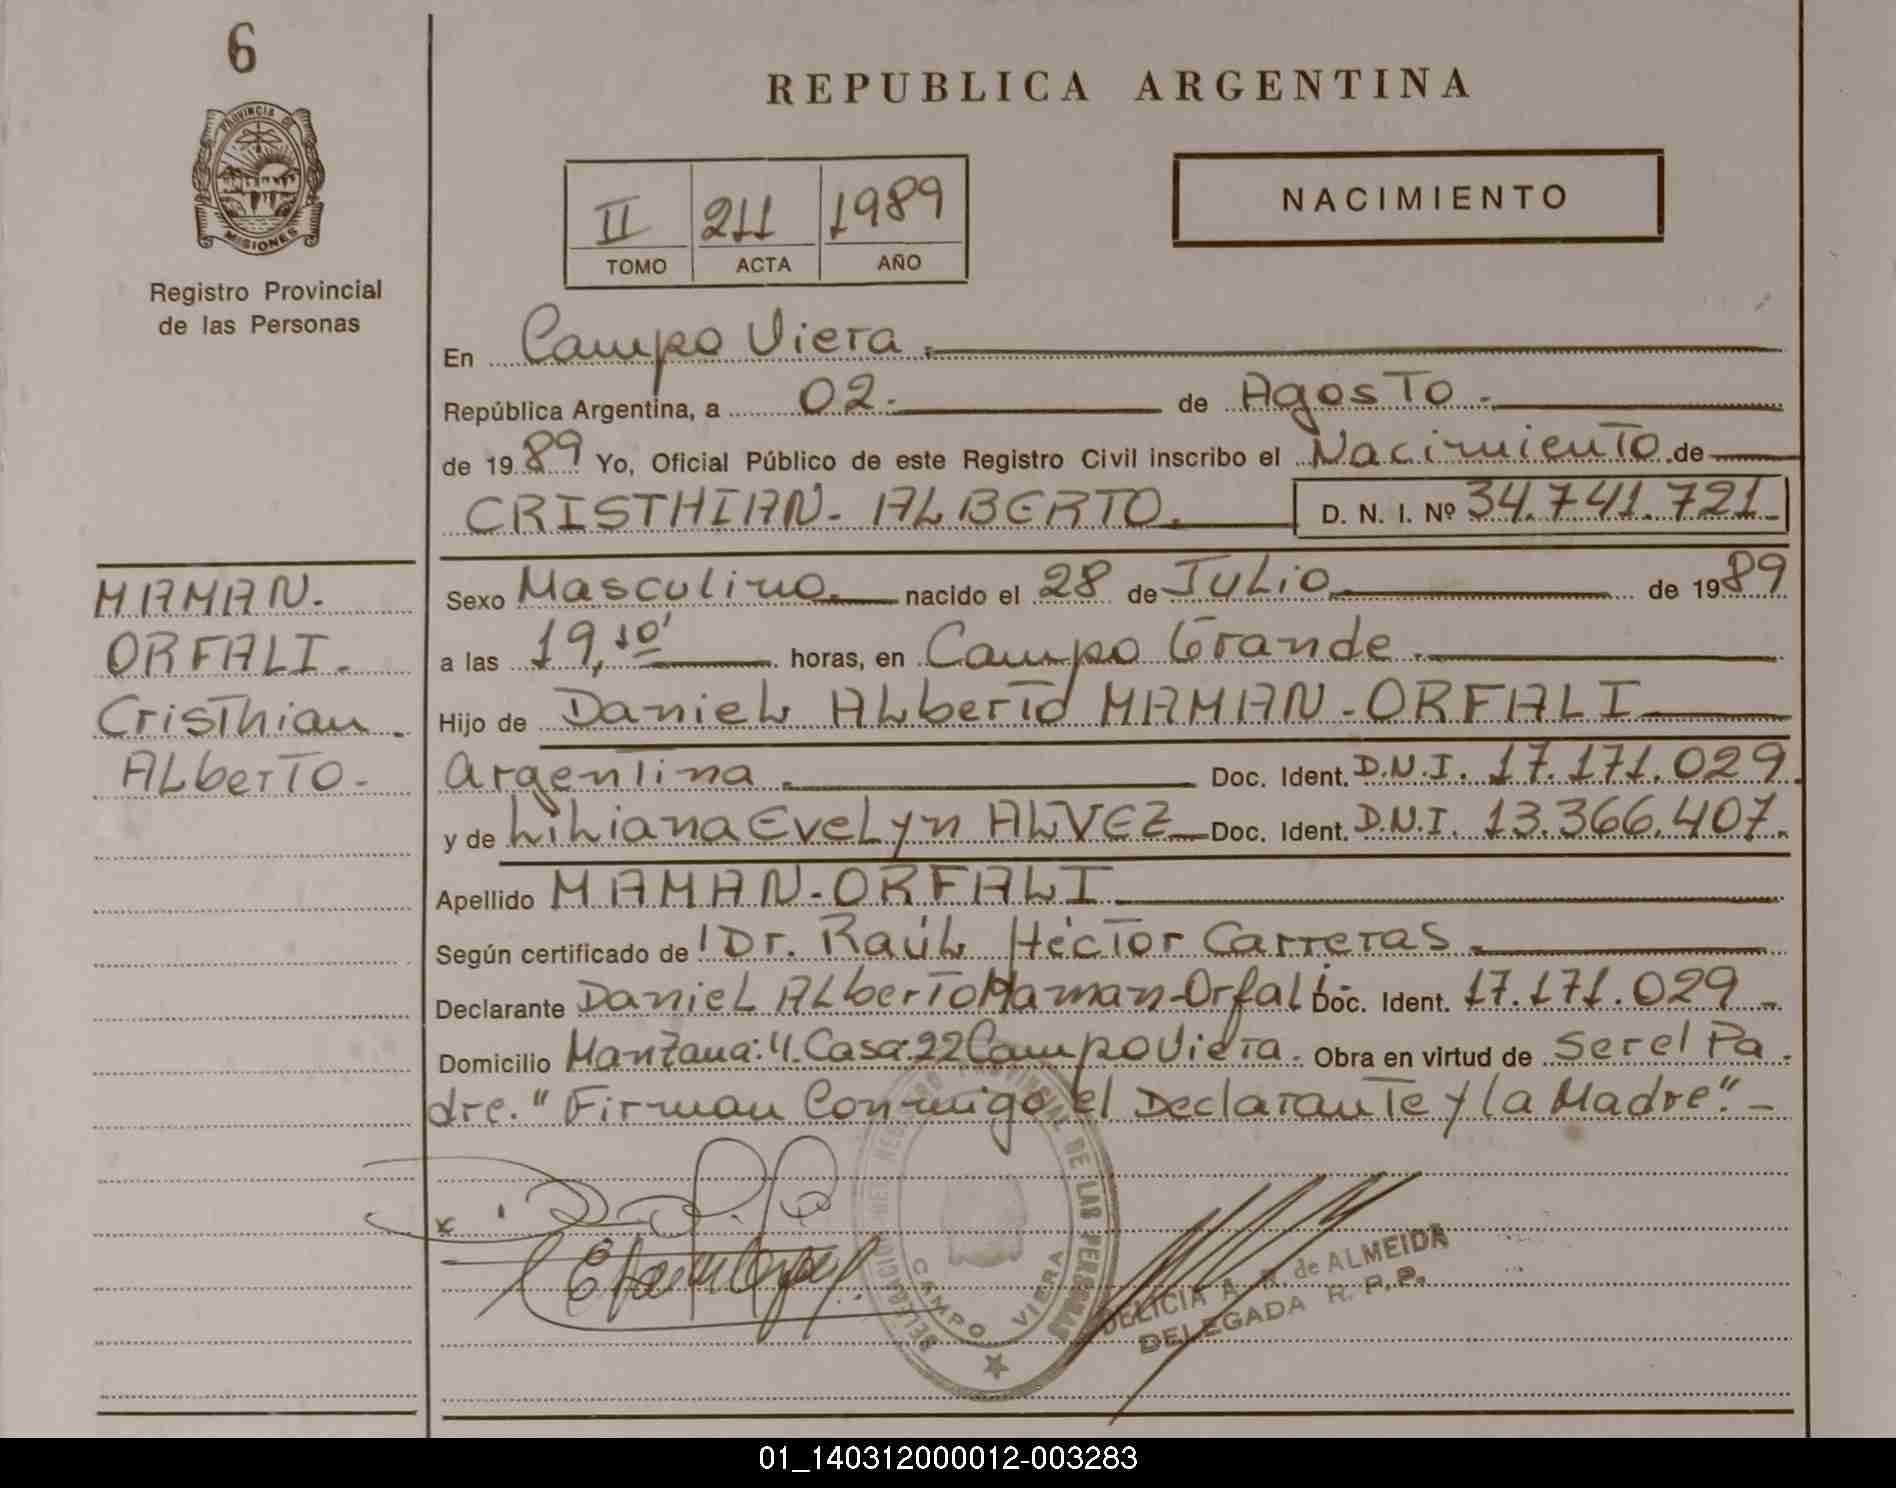 6
PROVINCIA DE
MISIONES
Registro Provincial
de las Personas
REPUBLICA ARGENTINA
II 211 1989
TOMO ACTA AÑO
NACIMIENTO
En Campo Viera.
República Argentina, a 02. de Agosto.
de 1989 Yo, Oficial Público de este Registro Civil inscribo el Nacimiento de
CRISTHIAN - ALBERTO. D. N. I. Nº 34.741.721.
MAMAN.
ORFALI.
Cristhian.
Alberto.
Sexo Masculino. nacido el 28 de Julio de 1989
a las 19,10' horas, en Campo Grande.
Hijo de Daniel Alberto MAMAN - ORFALI
argentina. Doc. Ident. D.N.I. 17.171.029.
y de Liliana Evelyn ALVEZ Doc. Ident. D.N.I. 13.366.407.
Apellido MAMAN - ORFALI
Según certificado de Dr. Raúl Héctor Carreras.
Declarante Daniel Alberto Maman-Orfali. Doc. Ident. 17.171.029.
Domicilio Manzana: 4. Casa: 22 Campo Viera. Obra en virtud de Ser el Pa
dre. "Firman Conmigo el Declarante y la Madre". -
REGISTRO PROVINCIAL DE LAS PERSONAS
DELEGACION
CAMPO VIERA
DELICIA A. de ALMEIDA
DELEGADA R. P. P.
01_140312000012-003283